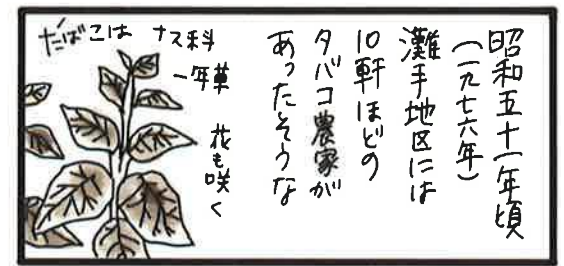 昭和五十一年頃
(一九七六年)
灘手地区には
10軒ほどの
タバコ農家が
あったそうな
たばこは ナス科
一年草
花も咲く